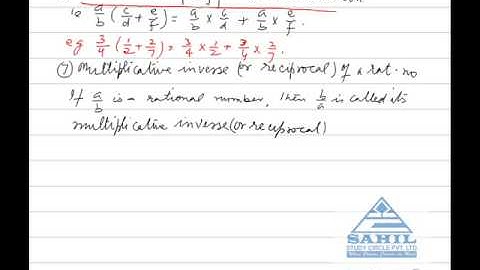 ie a/b (c/d + e/f) = a/b × c/d + a/b × e/f.
eg 3/4 (1/2 + 2/7) = 3/4 × 1/2 + 3/4 × 2/7.
⑦ Multiplicative inverse (or reciprocal) of a rat. no
If a/b is a rational number, then b/a is called its
multiplicative inverse (or reciprocal)
SAHIL
STUDY CIRCLE PVT. LTD.